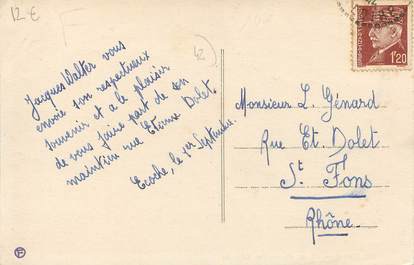 12 €
F
42
Jacques Walter vous
envoie son respectueux
souvenir et a le plaisir
de vous faire part de son
maintien rue Etienne Dolet
Ecoche, le 1er Septembre.
1F20
Monsieur L. Génard
Rue Et. Dolet
St Fons
Rhône.
F